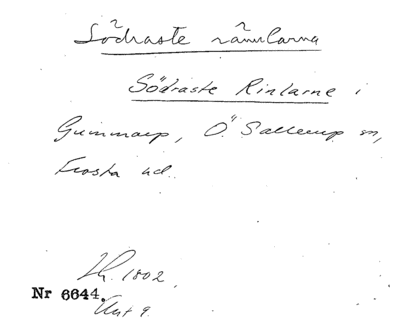 Södraste rännlarna
Södraste Rinlarne i
Gummarp, Ö. Sallerup sn,
Frosta hd.
Lh. 1802,
Nr 6644.
Akt 9.